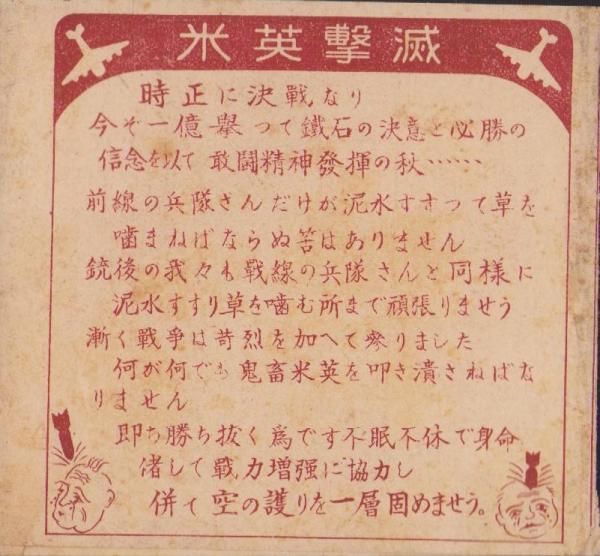 米英擊滅
時正に決戰なり
今ぞ一億一擧つて鐵石の決意と必勝の
信念を以て敢鬪精神發揮の秋……
前線の兵隊さんだけが泥水すすつて草を
噛まねばならぬ筈はありません
銃後の我々も戰線の兵隊さんと同樣に
泥水すすり草を噛む所まで頑張りませう
漸く戰爭は苛烈を加へて參りました
何が何でも鬼畜米英を叩き潰さねばな
りません
即ち勝ち拔く爲です不眠不休で身命
堵して戰力增强に協力し
併て空の護りを一層固めませう。